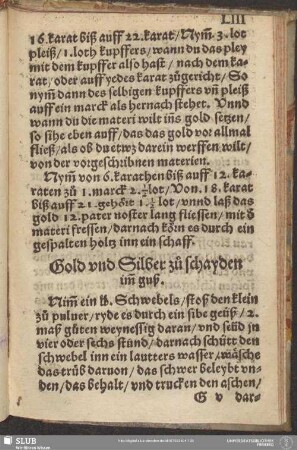 LIII
16. karat biß auff 22. karat / Nym̃. 3. lot
pleiß / 1. loth kupffers / wann du das pley
mit dem kupffer also hast / nach dem ka-
rat / oder auff yedes karat zůgericht / So
nym̃ dann des selbigen kupffers vn̄ pleiß
auff ein marck als hernach stehet. Vnnd
wann du die materi wilt in̄s gold setzen /
so sihe eben auff / das das gold vor allmal
fließ / als ob du etwz darein werffen wilt /
von der vorgeschribnen materien.
Nym̃ von 6. karathen biß auff 12. ka-
raten zů 1. marck 2. ½ lot / Von. 18. karat
biß auff 21. gehört 1. ½ lot / vnnd laß das
gold 12. pater noster lang fliessen / mit ď
materi fressen / darnach körn es durch ein
gespalten holtz inn ein schaff.
Gold vnd Silber zů schayden
im̃ guß.
Nim̃ ein lb. Schwebels / stoß den klein
zů puluer / ryde es durch ein sibe geüß / 2.
maß gůten weynessig daran / vnd seüd jn
vier oder sechs stund / darnach schütt den
schwebel inn ein lautters wasser / wäsche
das trüb daruon / das schwer beleybt vn-
den / das behalt / vnd trucken den aschen /
G v dar-
SLUB